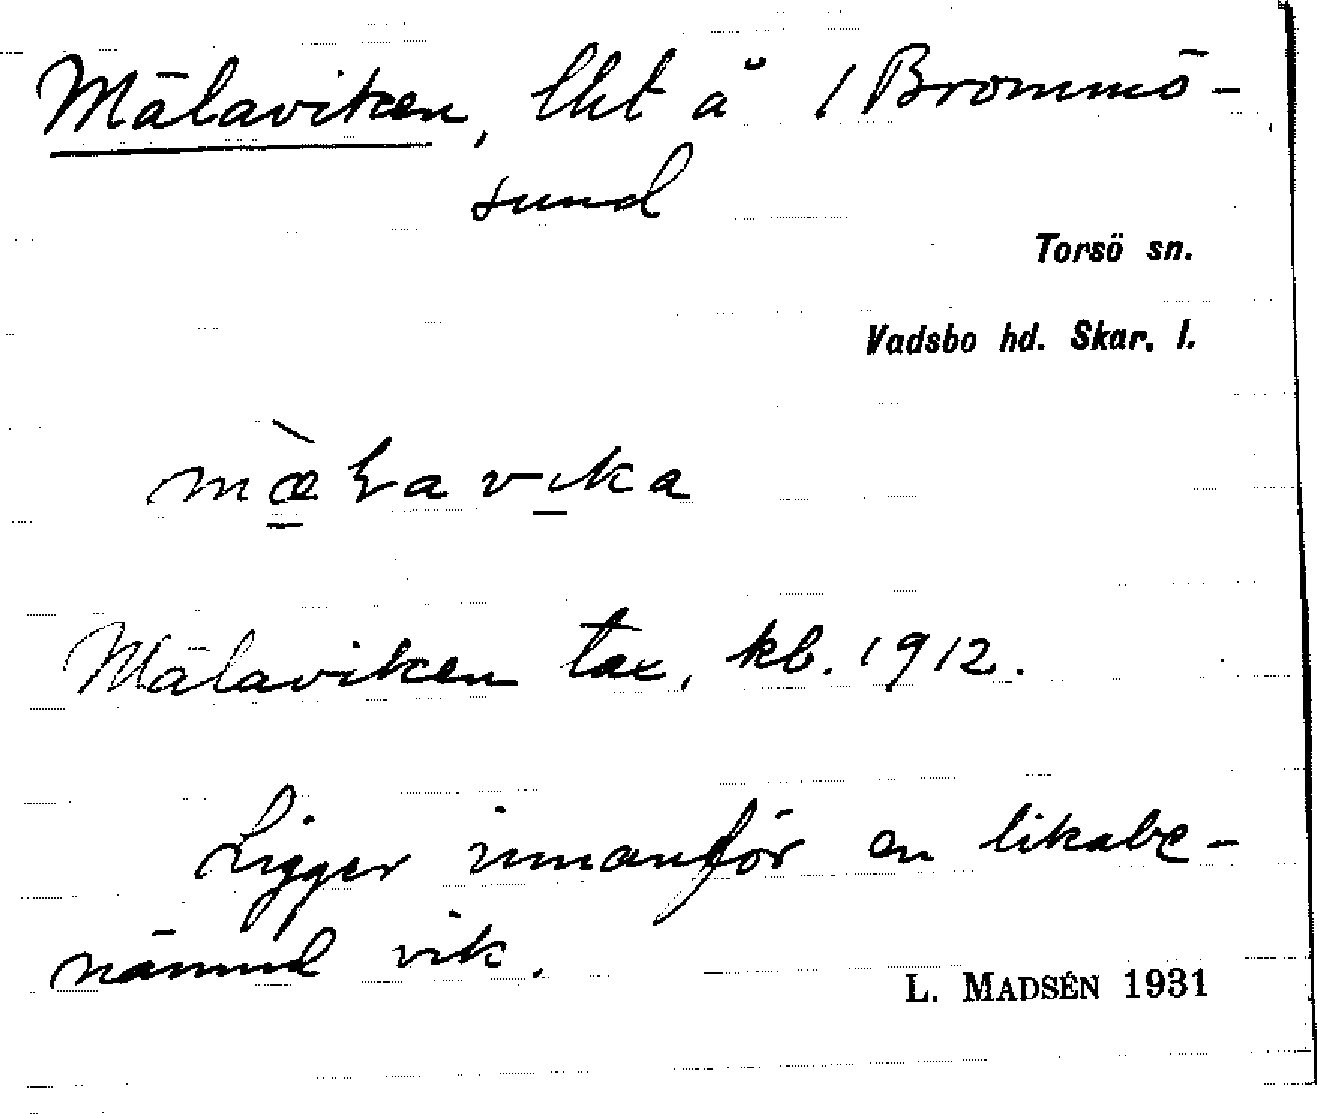 Mälaviken, lht å 1 Brommö-
sund
Torsö sn.
Vadsbo hd. Skar. l.
mæ̀Lavika
Mälaviken tax. kb. 1912.
Ligger innanför en likabe-
nämnd vik.
L. MADSÉN 1931